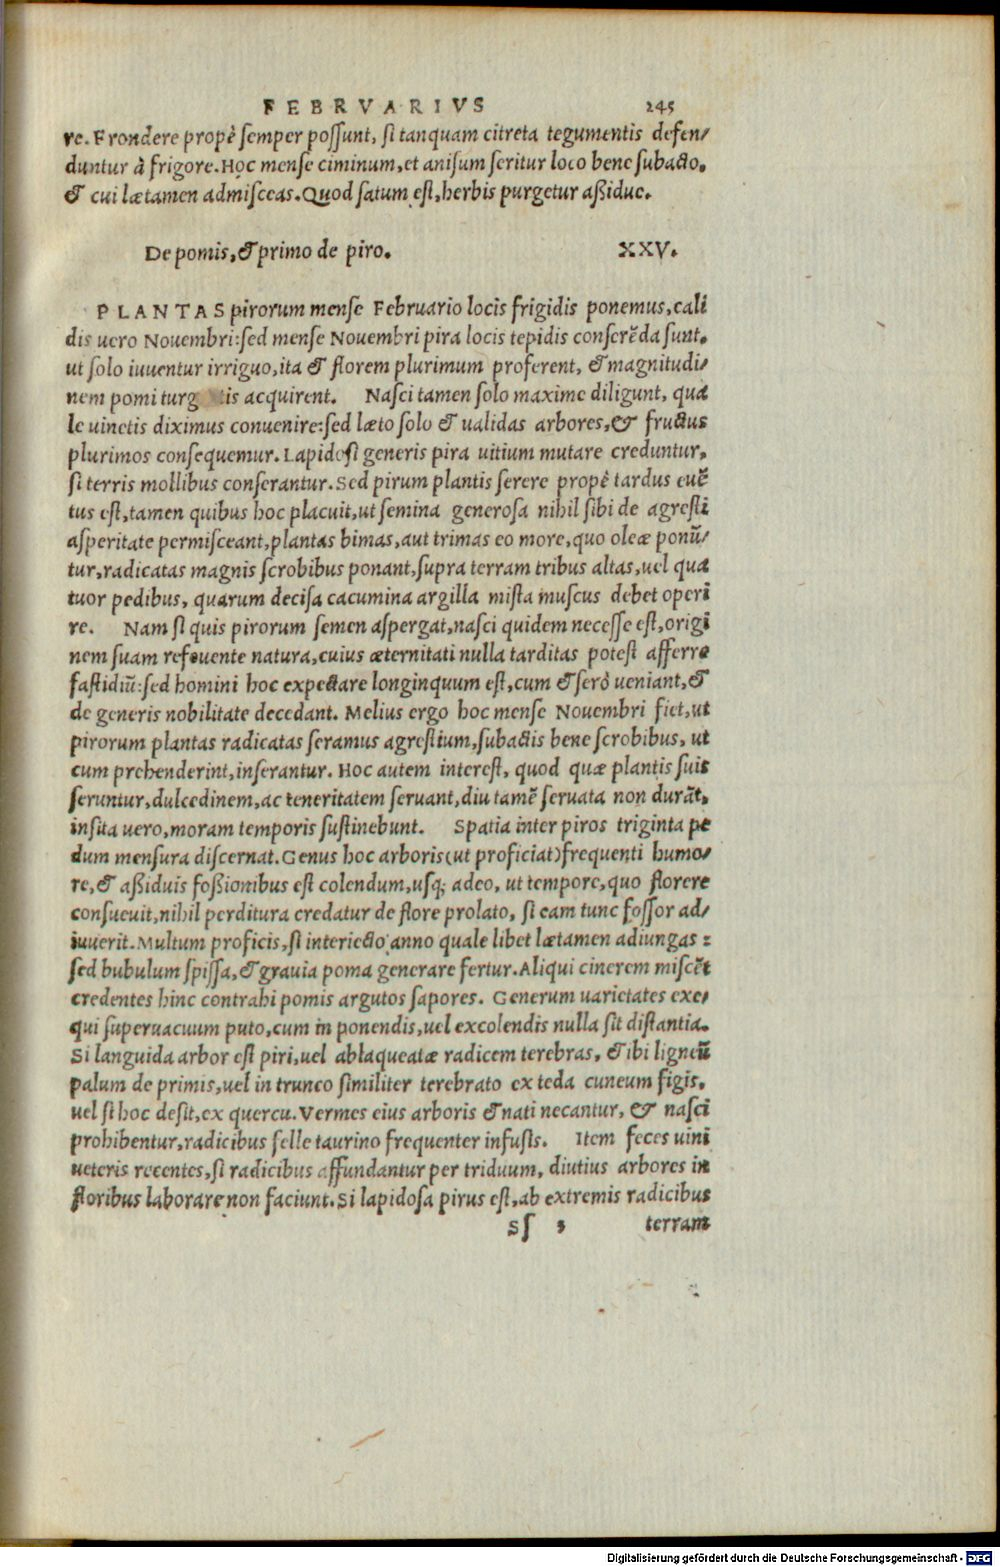 FEBRVARIVS 245
re. Frondere propè semper possunt, si tanquam citreta tegumentis defen/
duntur à frigore. Hoc mense ciminum, et anisum seritur loco bene subacto,
& cui lætamen admisceas. Quod satum est, herbis purgetur aßidue.
De pomis, & primo de piro. XXV.
PLANTAS pirorum mense Februario locis frigidis ponemus, cali
dis uero Nouembri: sed mense Nouembri pira locis tepidis conserēda sunt,
ut solo iuuentur irriguo, ita & florem plurimum proferent, & magnitudi/
nem pomi turg tis acquirent. Nasci tamen solo maxime diligunt, qua
le uinetis diximus conuenire: sed læto solo & ualidas arbores, & fructus
plurimos consequemur. Lapidosi generis pira uitium mutare creduntur,
si terris mollibus conserantur. Sed pirum plantis serere propè tardus euē
tus est, tamen quibus hoc placuit, ut semina generosa nihil sibi de agresti
asperitate permisceant, plantas bimas, aut trimas eo more, quo oleæ ponū/
tur, radicatas magnis scrobibus ponant, supra terram tribus altas, uel qua
tuor pedibus, quarum decisa cacumina argilla mista muscus debet operi
re. Nam si quis pirorum semen aspergat, nasci quidem necesse est, origi
nem suam refouente natura, cuius æternitati nulla tarditas potest afferre
fastidiū: sed homini hoc expectare longinquum est, cum & serò ueniant, &
de generis nobilitate decedant. Melius ergo hoc mense Nouembri fiet, ut
pirorum plantas radicatas seramus agrestium, subactis bene scrobibus, ut
cum prehenderint, inserantur. Hoc autem interest, quod quæ plantis suis
seruntur, dulcedinem, ac teneritatem seruant, diu tamē seruata non durāt,
insita uero, moram temporis sustinebunt. Spatia inter piros triginta pe
dum mensura discernat. Genus hoc arboris (ut proficiat) frequenti humo/
re, & aßiduis foßionibus est colendum, usq; adeo, ut tempore, quo florere
consueuit, nihil perditura credatur de flore prolato, si eam tunc fossor ad/
iuuerit. Multum proficis, si interiecto anno quale libet lætamen adiungas:
sed bubulum spissa, & grauia poma generare fertur. Aliqui cinerem miscēt
credentes hinc contrahi pomis argutos sapores. Generum uarietates exe/
qui superuacuum puto, cum in ponendis, uel excolendis nulla sit distantia.
Si languida arbor est piri, uel ablaqueatæ radicem terebras, & ibi ligneū
palum de primis, uel in trunco similiter terebrato ex teda cuneum figis,
uel si hoc desit, ex quercu. Vermes eius arboris & nati necantur, & nasci
prohibentur, radicibus felle taurino frequenter infusis. Item feces uini
ueteris recentes, si radicibus affundantur per triduum, diutius arbores in
floribus laborare non faciunt. Si lapidosa pirus est, ab extremis radicibus
Sſ 3 terram
Digitalisierung gefördert durch die Deutsche Forschungsgemeinschaft - DFG